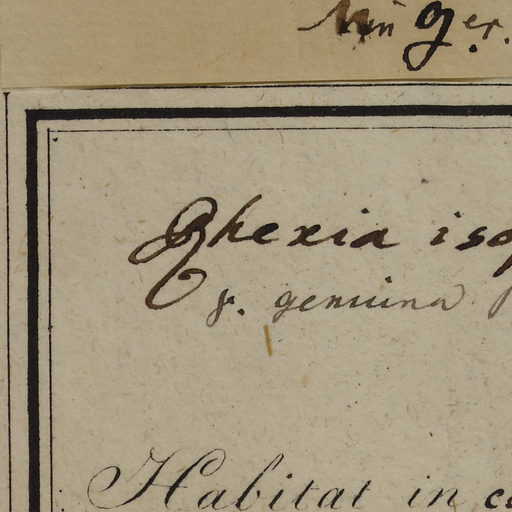 Rhexia iso
γ. genuina
Habitat in c